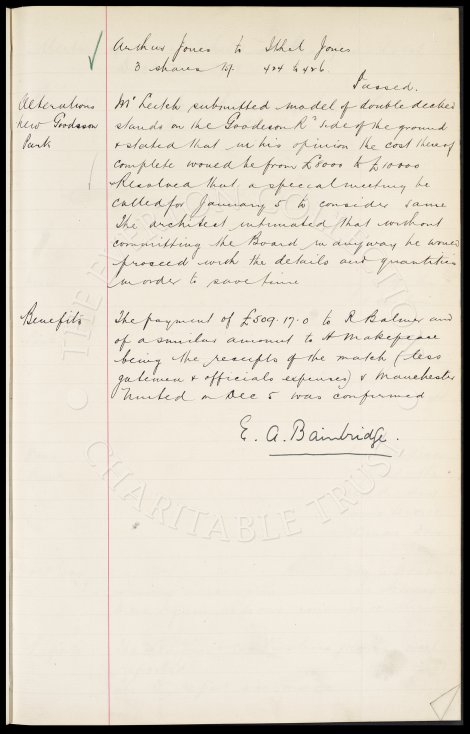 Arthur Jones to Ithel Jones
3 shares 424 to 426.
Passed.
Alterations
New Goodison
Park
Mr Leitch submitted model of double decked
stands on the Goodison Rd side of the ground
& stated that in his opinion the cost thereof
complete would be from £8000 to £10000
Resolved that a special meeting be
called for January 5 to consider same
The architect intimated that without
committing the Board in anyway he would
proceed with the details and quantities
in order to save time
Benefits
The payment of £509.17.0 to R Balmer and
of a similar amount to H Makepeace
being the receipts of the match (less
gatemen & officials expenses) v Manchester
United on Dec 5 was confirmed
E. A. Bainbridge.
THE EVERTON COLLECTION
CHARITABLE TRUST